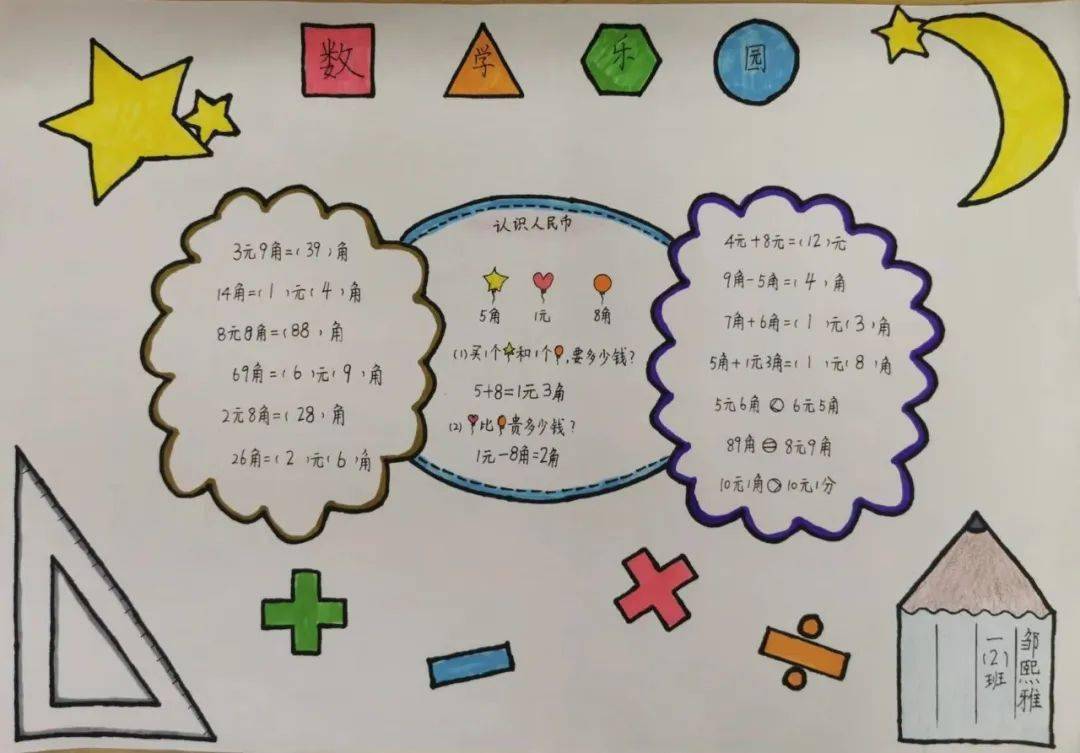 数 学 乐 园
3元9角=(39)角
14角=(1)元(4)角
8元8角=(88)角
69角=(6)元(9)角
2元8角=(28)角
26角=(2)元(6)角
认识人民币
5角 1元 8角
(1)买1个和1个,要多少钱?
5+8=1元3角
(2)比贵多少钱?
1元-8角=2角
4元+8元=(12)元
9角-5角=(4)角
7角+6角=(1)元(3)角
5角+1元3角=(1)元(8)角
5元6角<6元5角
89角=8元9角
10元1角>10元1分
邹熙雅
一(2)班